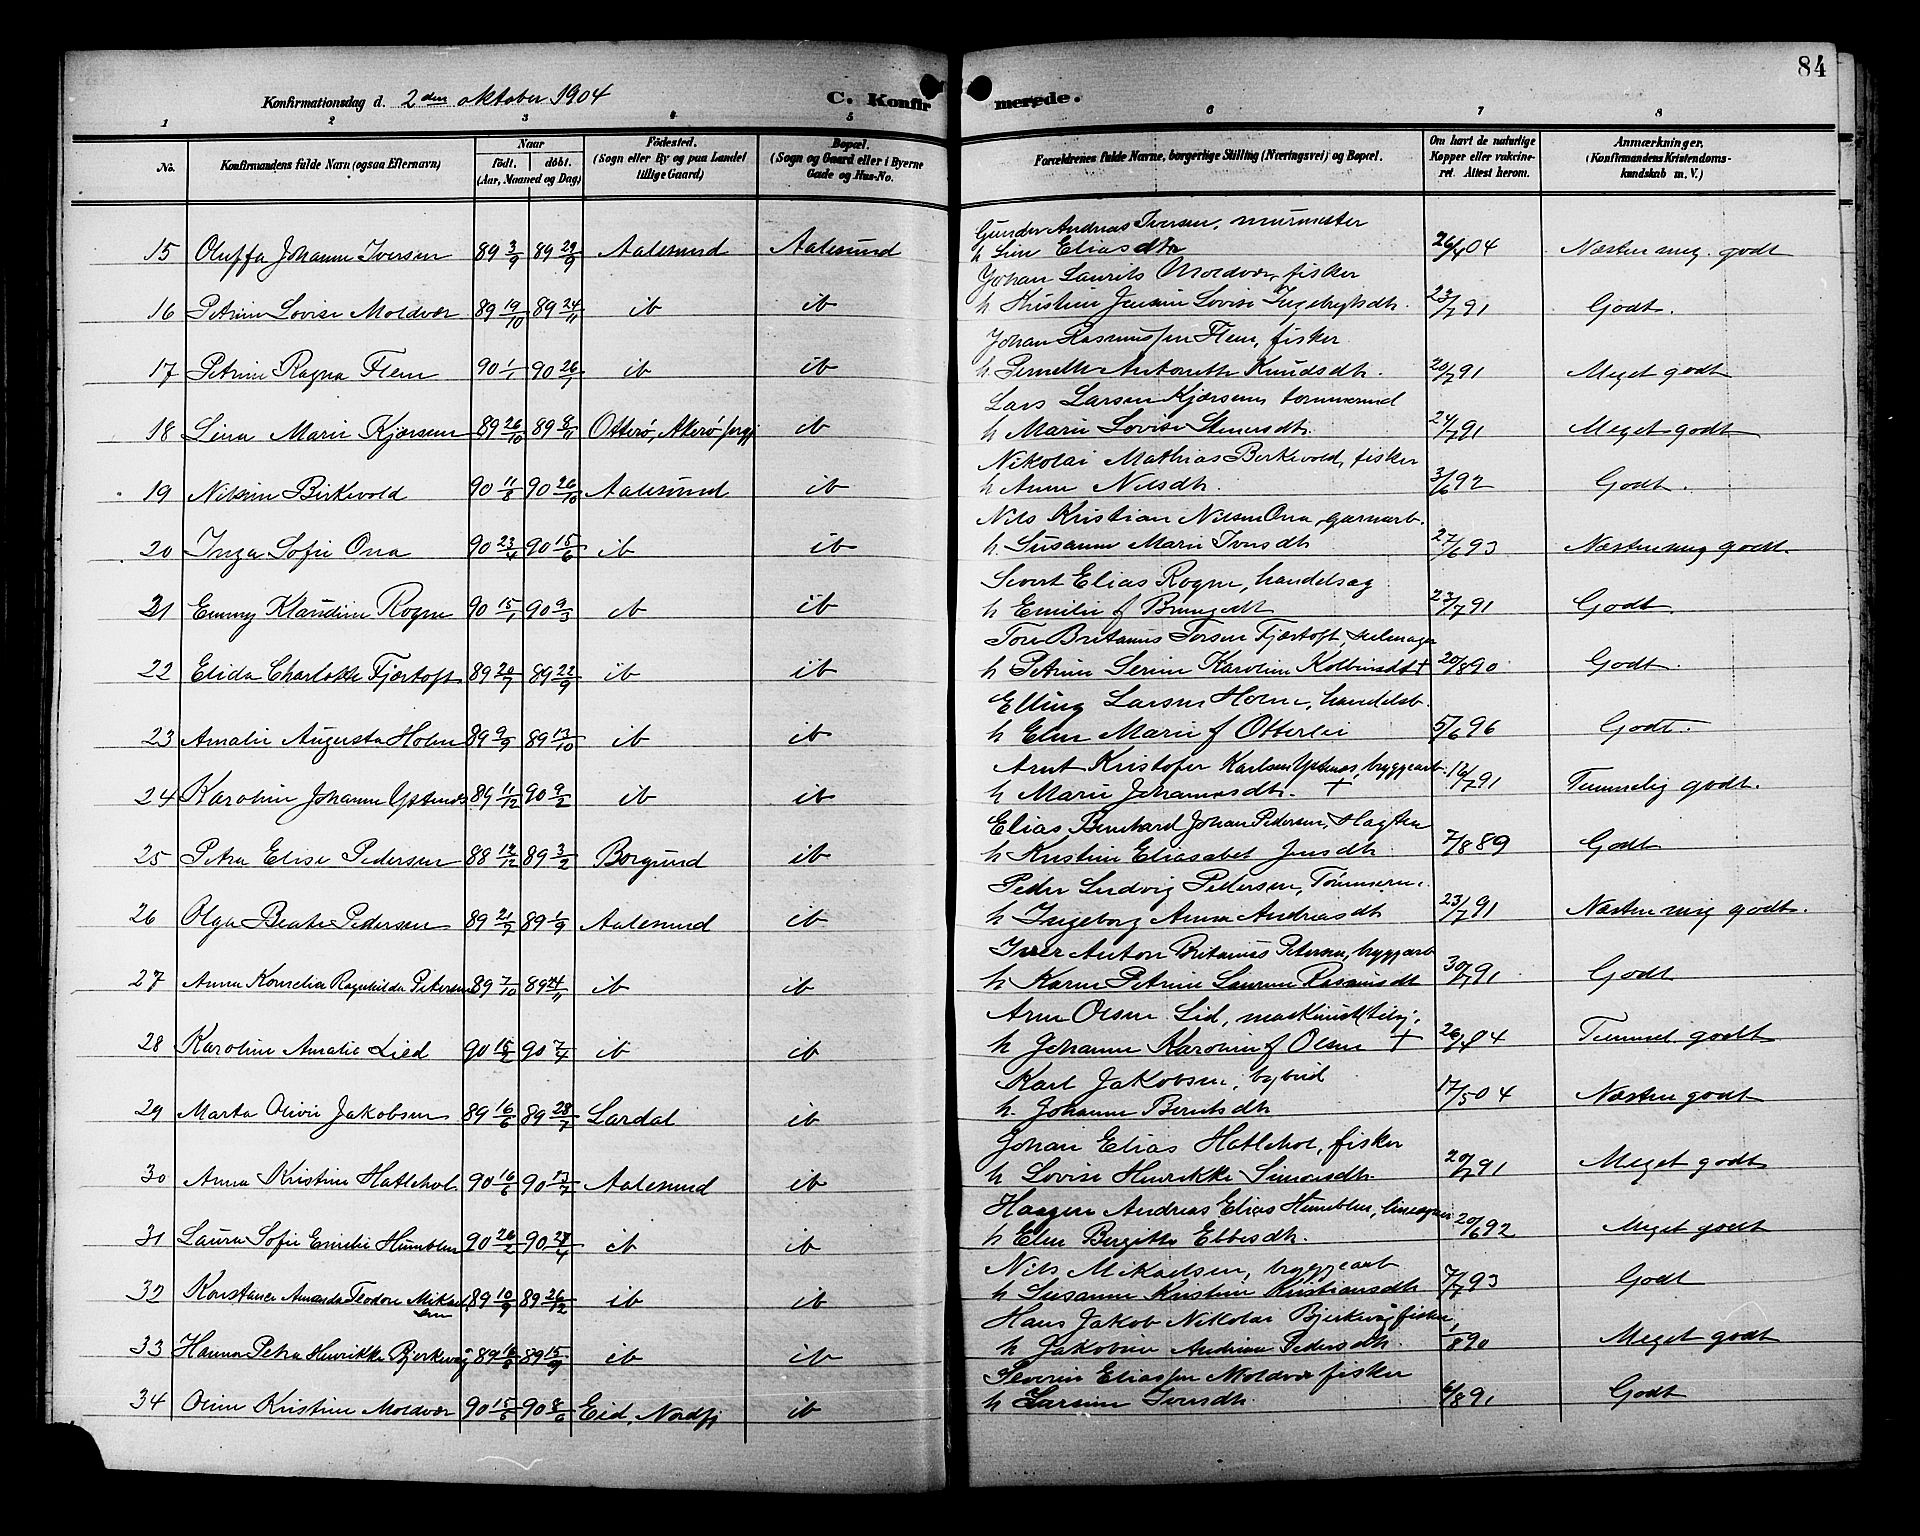 84
Konfirmationsdag d. 2 den oktober 1904
C. Konfirmerede.
1 2 3 4 5 6 7 8
No. Konfirmandens fulde Navn (ogsaa Efternavn) Naar født. døbt. (Aar, Maaned og Dag) Fødested. (Sogn eller By og paa Landet tillige Gaard) Bopæl. (Sogn og Gaard eller i Byerne Gade og Hus-No. Forældrenes fulde Navne, borgerlige Stilling (Næringsvei) og Bopæl. Om havt de naturlige Kopper eller vakcineret. Attest herom. Anmærkninger. (Konfirmandens Kristendomskundskab m. V.)
Gunder Andreas Iversen, murmester
15 Oluffa Johanne Iversen 89 3/9 89 29/9 Aalesund Aalesund h Line Eliasdtr 26/4 04 Næsten meg. godt
Johan Laurits Moldvær, fisker
16 Petrine Lovise Moldvær 89 19/10 89 24/11 ib ib h Kristine Jensine Lovise Ingebrigtsdt. 23/7 91 Godt.
Johan Rasmussen Flem, fisker
17 Petrine Ragna Flem 90 1/1 90 26/1 ib ib h Pernelle Antonette Knudsdt. 20/7 91 Meget godt
Lars Larsen Kjørsem, tømmermd
18 Lina Marie Kjørsem 89 26/10 89 8/11 Otterø, Akerø prgj ib h Marie Lovise Stenersdt. 24/7 91 Meget godt
Nikolai Mathias Birkevold, fisker
19 Nilsine Birkevold 90 11/8 90 26/10 Aalesund ib h Anne Nilsdt. 3/6 92 Godt.
Nils Kristian Nilsen Ona, garnarb.
20 Inga Sofie Ona 90 23/4 90 15/6 ib ib h Susanne Marie Iversdt 27/6 93 Næsten meg godt.
Sivert Elias Rogne, handelsag
21 Emmy Klaudine Rogne 90 15/1 90 9/3 ib ib h Emilie f 23/7 91 Godt.
Tore Britanus Torsen Fjærtoft, seilmager
22 Elida Charlotte Fjærtoft 89 20/7 89 22/9 ib ib h Petrine Serine Karoline Kolbeinsdt + 20/8 90 Godt.
Elling Larsen Holm, handelsb.
23 Amalie Augusta Holm 89 9/9 89 13/10 ib ib h Eline Marie f Otterlei 5/6 96 Godt.
Arnt Kristofer Karlsen Ystenes, bryggearb.
24 Karoline Johanne Ystenes 89 11/12 90 9/2 ib ib h Marie Johannesdt. + 16/7 91 Temmelig godt.
Elias Bernhard Johan Pedersen,
25 Petra Elise Pedersen 88 12/12 89 3/2 Borgund ib h Kristine Eliasabet Jensdt. 7/8 89 Godt
Peder Ludvig Pedersen, Tømmerm.
26 Olga Beate Pedersen 89 21/7 89 1/9 Aalesund ib h Ingeborg Anna Andreasdt 23/7 91 Næsten meg godt.
Iver Anton Britanus Petersen, bryggearb
27 Anna Kornelia Ragnhilda Petersen 89 7/10 89 24/11 ib ib h Karen Petrine Laurine Rasmusdt 30/7 91 Godt
Arne Olsen Lid,
28 Karoline Amalie Lied 90 15/2 90 7/4 ib ib h Johanne Karoline f Olsen + 26/4 04 Temmel. godt.
Karl Jakobsen, bybud
29 Marta Olivie Jakobsen 89 16/6 89 28/7 Lardal ib h. Johanne Berntsdt 17/5 04 Næsten godt
Johan Elias Hatlehol, fisker
30 Anna Kristine Hatlehol 90 16/6 90 13/7 Aalesund ib h Lovise Henrikke Simonsdt. 20/7 91 Meget godt
Haagen Andreas Elias Humblen,
31 Laura Sofie Emelie Humblen 90 26/2 90 27/4 ib ib h Eline Birgitte Ebbesdt. 20/6 92 Meget godt
Nils Mikaelsen, bryggearb
32 Konstance Amanda Teodore Mikaelsen 89 10/9 89 26/12 ib ib h Susanne Kristine Kristiansdt 7/7 93 Godt
Hans Jakob Nikolai Bjerkevåg fisker,
33 Hanna Petra Henrikke Bjerkevåg 89 16/8 89 15/9 ib ib h Jakobine Andrine Pedersdt. 1/8 90 Meget godt
Severin Eliassen Moldvær fisker
34 Oline Kristine Moldvær 90 15/5 90 8/6 Eid, Nordfj ib h Larsine Iversdt. 6/8 91 Godt